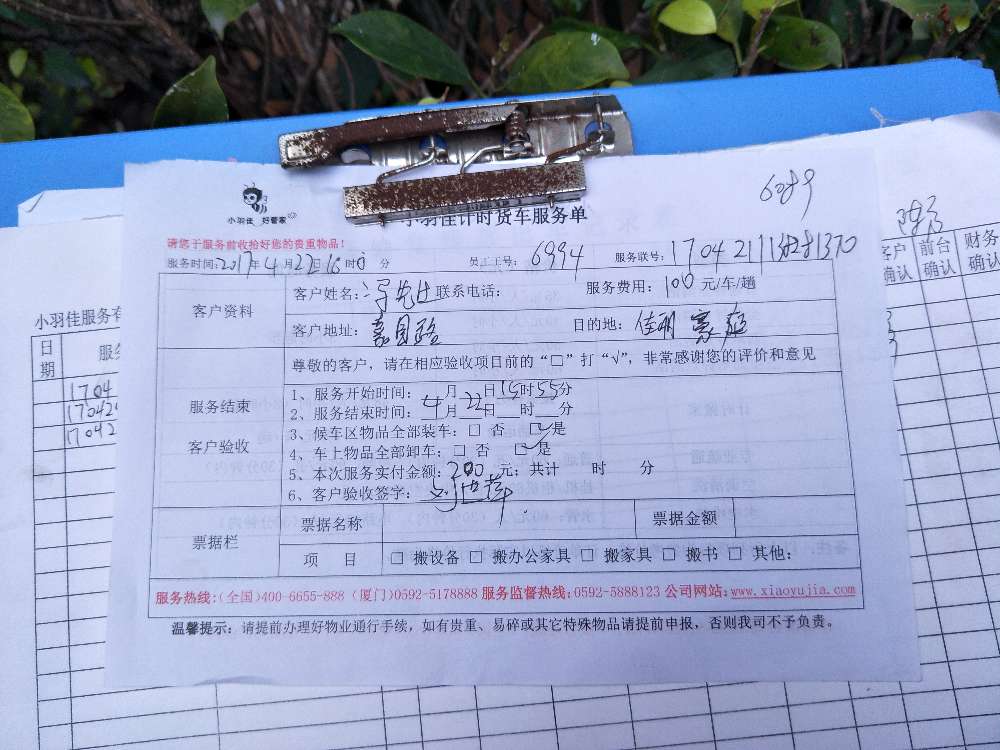 6089
小羽佳 好管家
小羽佳计时货车服务单
请您于服务前收拾好您的贵重物品!
服务时间:2017年4月22日16时0分 员工工号: 6994 服务联号:
客户资料
客户姓名: 先生 联系电话: 服务费用: 100 元/车/趟
客户地址: 嘉园路 目的地: 佳
尊敬的客户,请在相应验收项目前的“□”打“√”,非常感谢您的评价和意见
服务结束
客户验收
1、服务开始时间: 4月22日15时55分
2、服务结束时间: 4月22日__时__分
3、候车区物品全部装车: □ 否 ☑是
4、车上物品全部卸车: □ 否 ☑是
5、本次服务实付金额: 200 元; 共计 时 分
6、客户验收签字:
票据栏
票据名称 票据金额
项 目 □ 搬设备 □ 搬办公家具 □ 搬家具 □ 搬书 □ 其他;
服务热线:(全国)400-6655-888 (厦门)0592-5178888 服务监督热线:0592-5888123 公司网站: www.xiaoyujia.com
温馨提示: 请提前办理好物业通行手续, 如有贵重、易碎或其它特殊物品请提前申报, 否则我司不予负责。
小羽佳服务有
日期
1704
17042
17042
客户确认 前台确认 财务确认